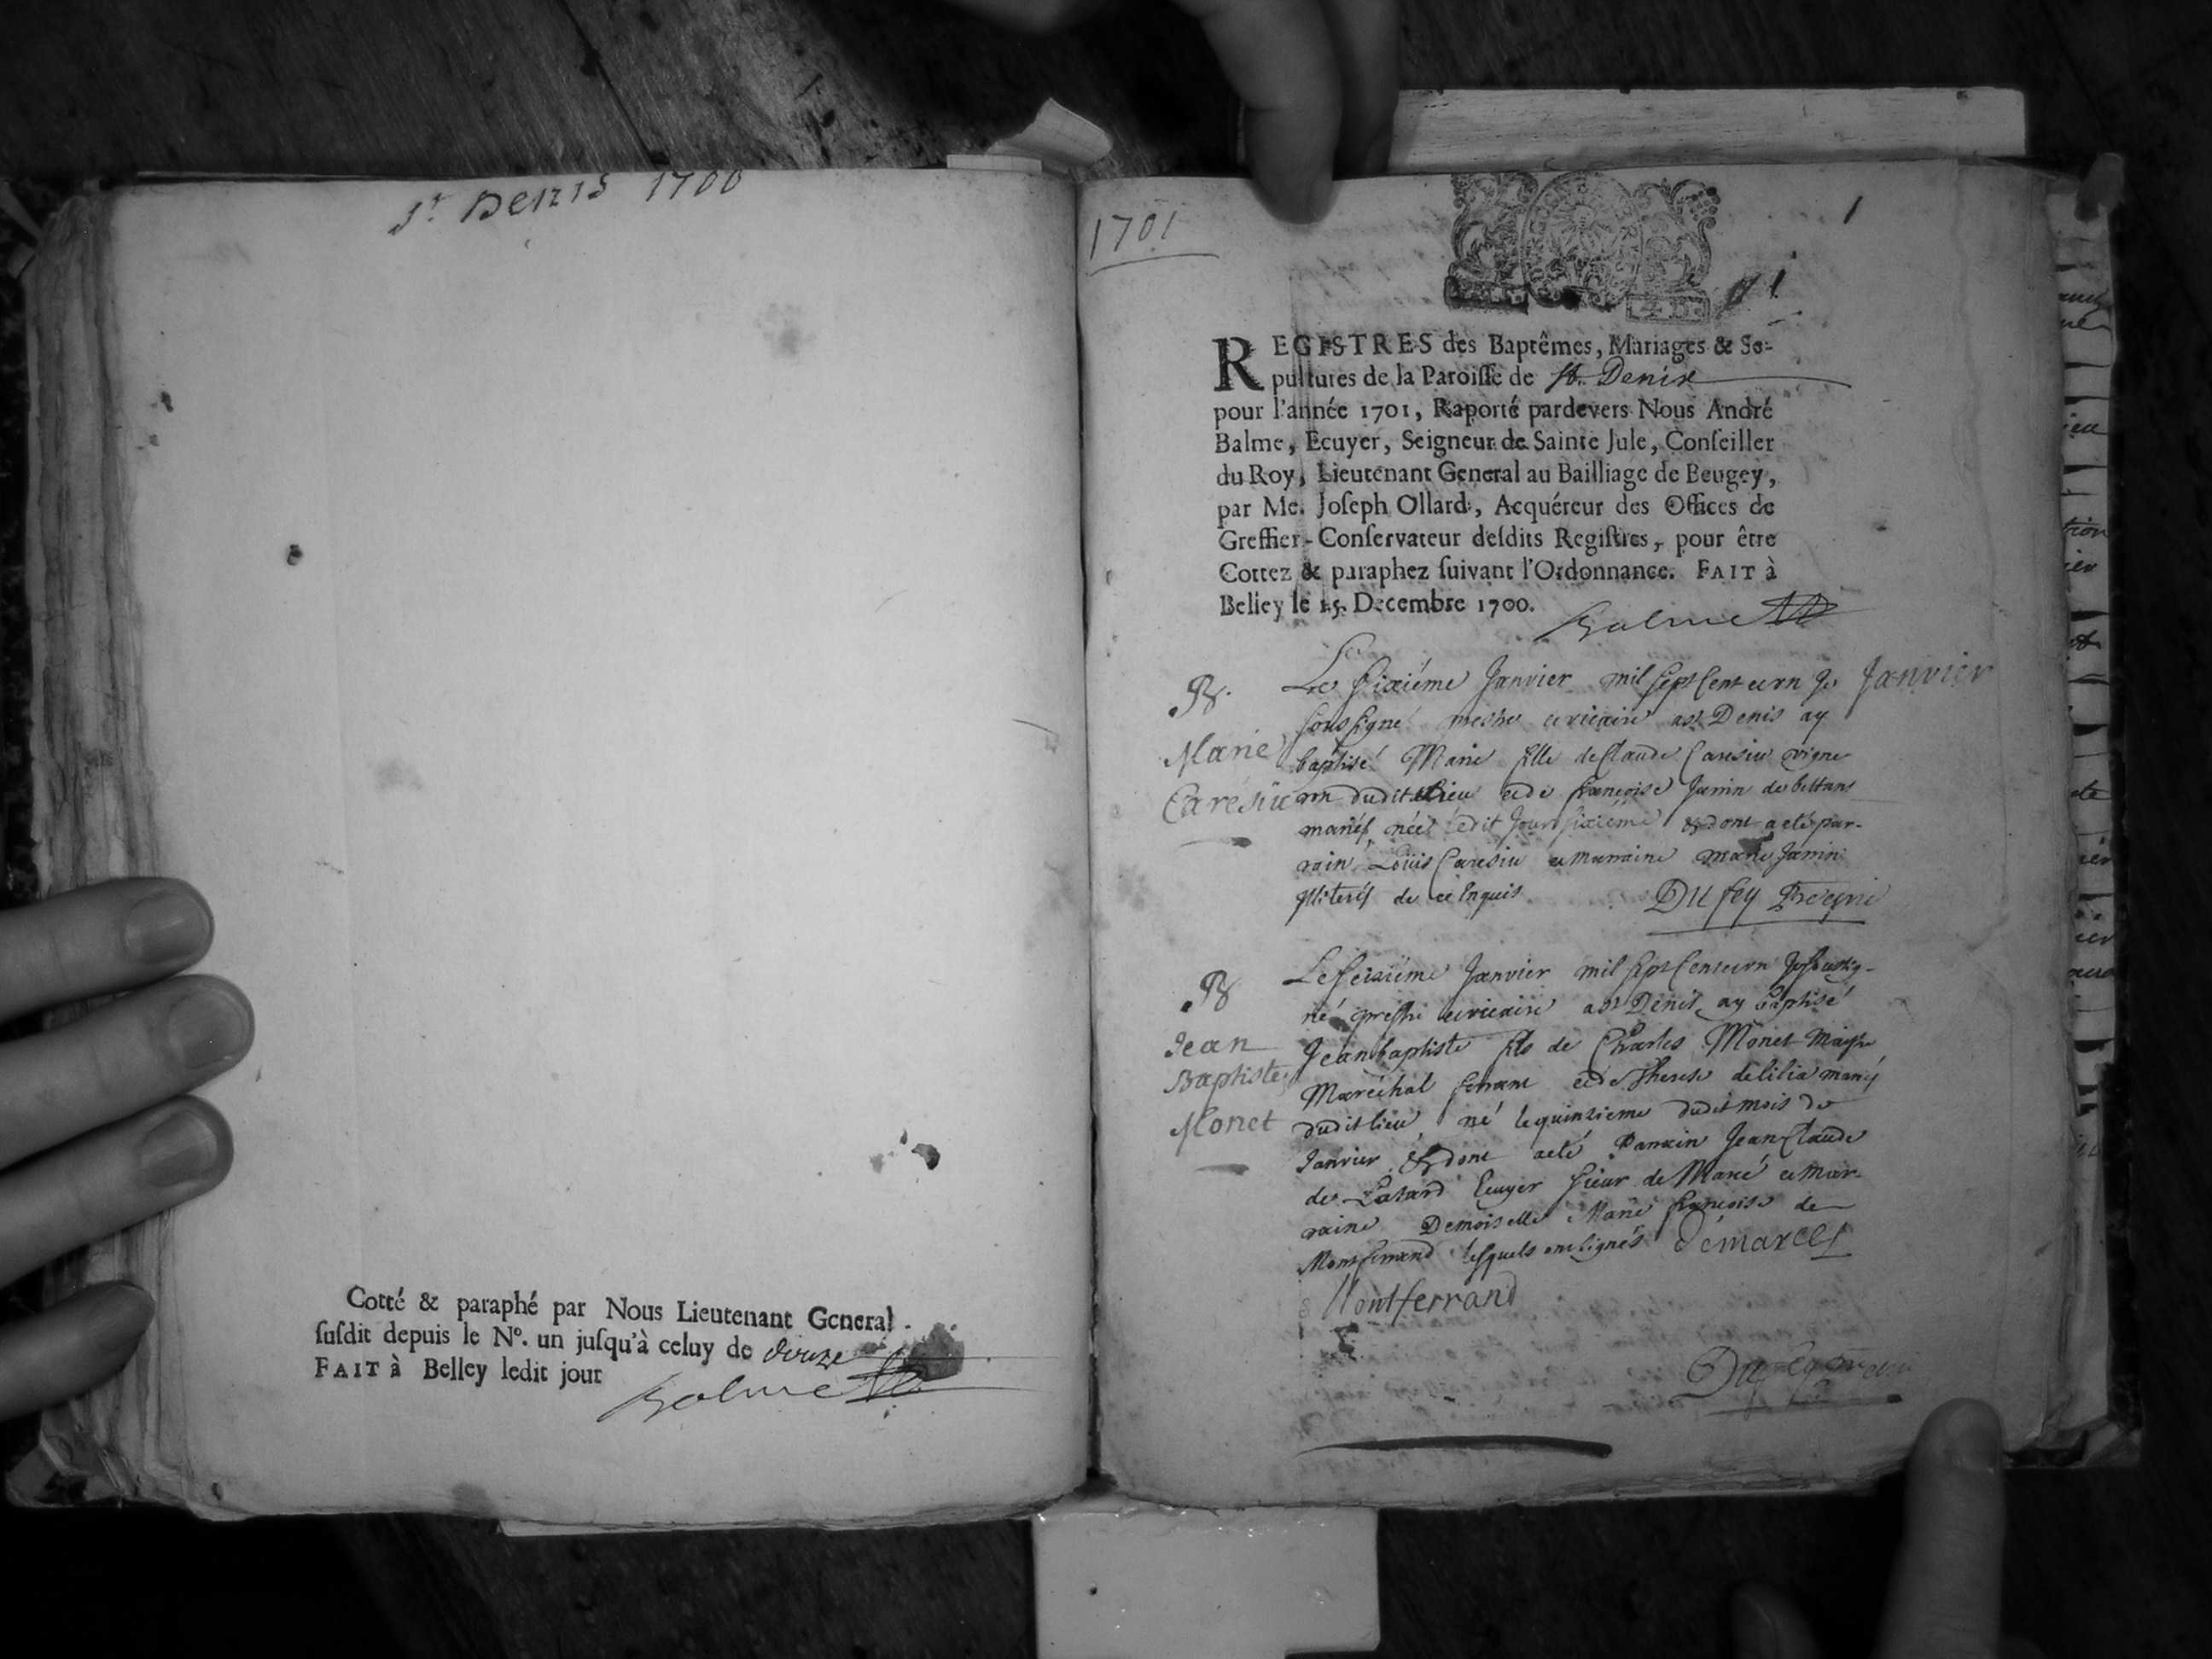 St Denis 1700
Cotté & paraphé par Nous Lieutenant General
susdit depuis le No. un jusqu'à celuy de douze
FAIT à Belley ledit jour
Balme
1701
1
REGISTRES des Baptêmes, Mariages & Se-
pultures de la Paroisse de St. Denis
pour l'année 1701, Raporté pardevers Nous André
Balme, Ecuyer, Seigneur de Sainte Jule, Conseiller
du Roy, Lieutenant General au Bailliage de Beugey,
par Me. Joseph Ollard, Acquéreur des Offices de
Greffier-Conservateur desdits Registres, pour être
Cottez & paraphez suivant l'Ordonnance. FAIT à
Belley le 15. Decembre 1700.
Balme
Janvier
B.
Marie
Caresiu
Le sixiéme Janvier mil sept Cent et un Je
soussigné prestre et vicaire a st Denis ay
baptisé Marie fille de Claude Caresiu vigne
ron dudit lieu et de françoise Janin de bettans
mariés née ledit Jour sixiéme & dont a eté par-
rain Loüis Caresiu et marraine marie Janin
Illiterés de ce Enquis
Dufey
B
Jean
Baptiste
Monet
Le seiziéme Janvier mil sept Cent et un Je soussig-
né prestre et vicaire a st Denis ay baptisé
Jean baptiste fils de Charles Monet Maistre
Maréchal ferrant et de Therese delilia mariés
dudit lieu né le quinzieme dudit mois de
Janvier & dont a eté Parrain Jean Claude
de Ecuyer sieur de Marcé et Mar-
raine Demoiselle Marie françoise de
Montferrand lesquels ont signés
Montferrand
Dufey